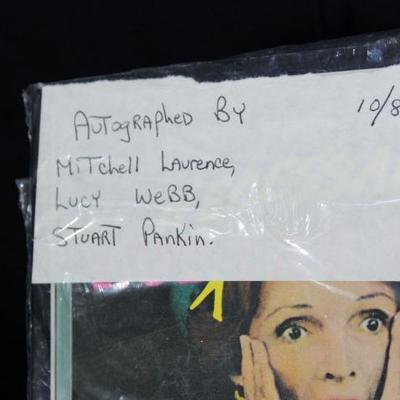 AUTographed By 10/8
MiTchell Laurence,
Lucy WeBB,
STUART Pankin.
1